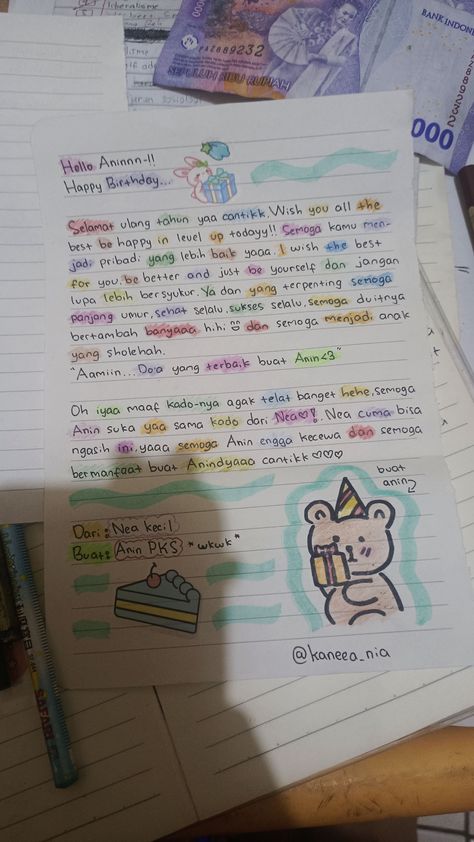 liberalisme
PAZ889232
SEPULUH RIBU RUPIAH
BANK INDONESIA
000
Hello Aninnn-!!
Happy Birthday...
Selamat ulang tahun yaa cantikk. Wish you all the
best be happy in level up todayy!! Semoga kamu men-
jadi pribadi yang lebih baik yaaa. I wish the best
for you, be better and just be yourself dan jangan
lupa lebih bersyukur. Ya dan yang terpenting semoga
panjang umur, sehat selalu, sukses selalu, semoga duitnya
bertambah banyaaa hihi dan semoga menjadi anak
yang sholehah.
"Aamiin... Doa yang terbaik buat Anin<3"
Oh iyaa maaf kado-nya agak telat banget hehe, semoga
Anin suka yaa sama kado dari Nea♡! Nea cuma bisa
ngasih ini, yaaa semoga Anin engga kecewa dan semoga
bermanfaat buat Anindyaaa cantikk ♡♡♡
buat
anin
Dari: Nea kecil
Buat: Anin PKS *wkwk*
@kaneea_nia
SAFARI